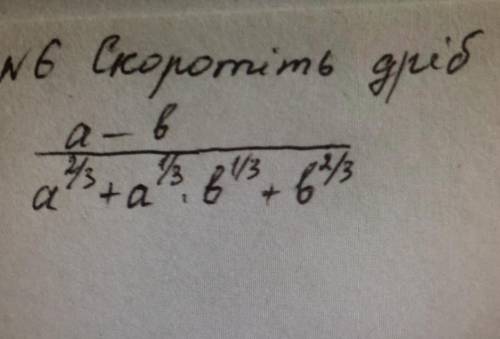 №6 Скоротіть дріб
a - b
a^2/3 + a^1/3 · b^1/3 + b^2/3